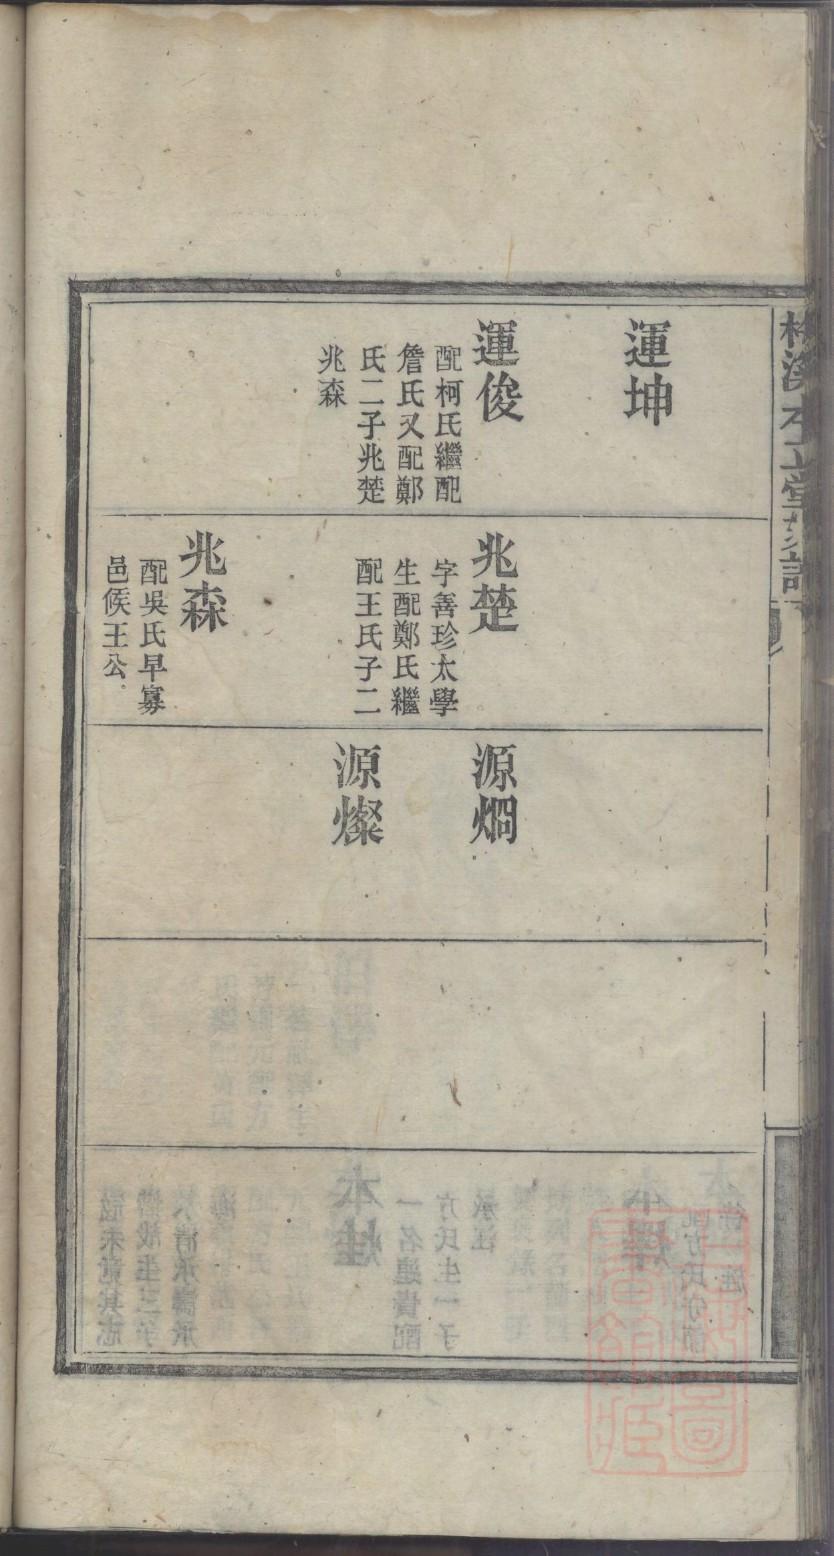 運坤
運俊
配柯氏繼配
詹氏又配鄭
氏二子兆楚
兆森
兆楚
字善珍太學
生配鄭氏繼
配王氏子二
兆森
配吳氏早寡
邑侯王公
源烱
源燦